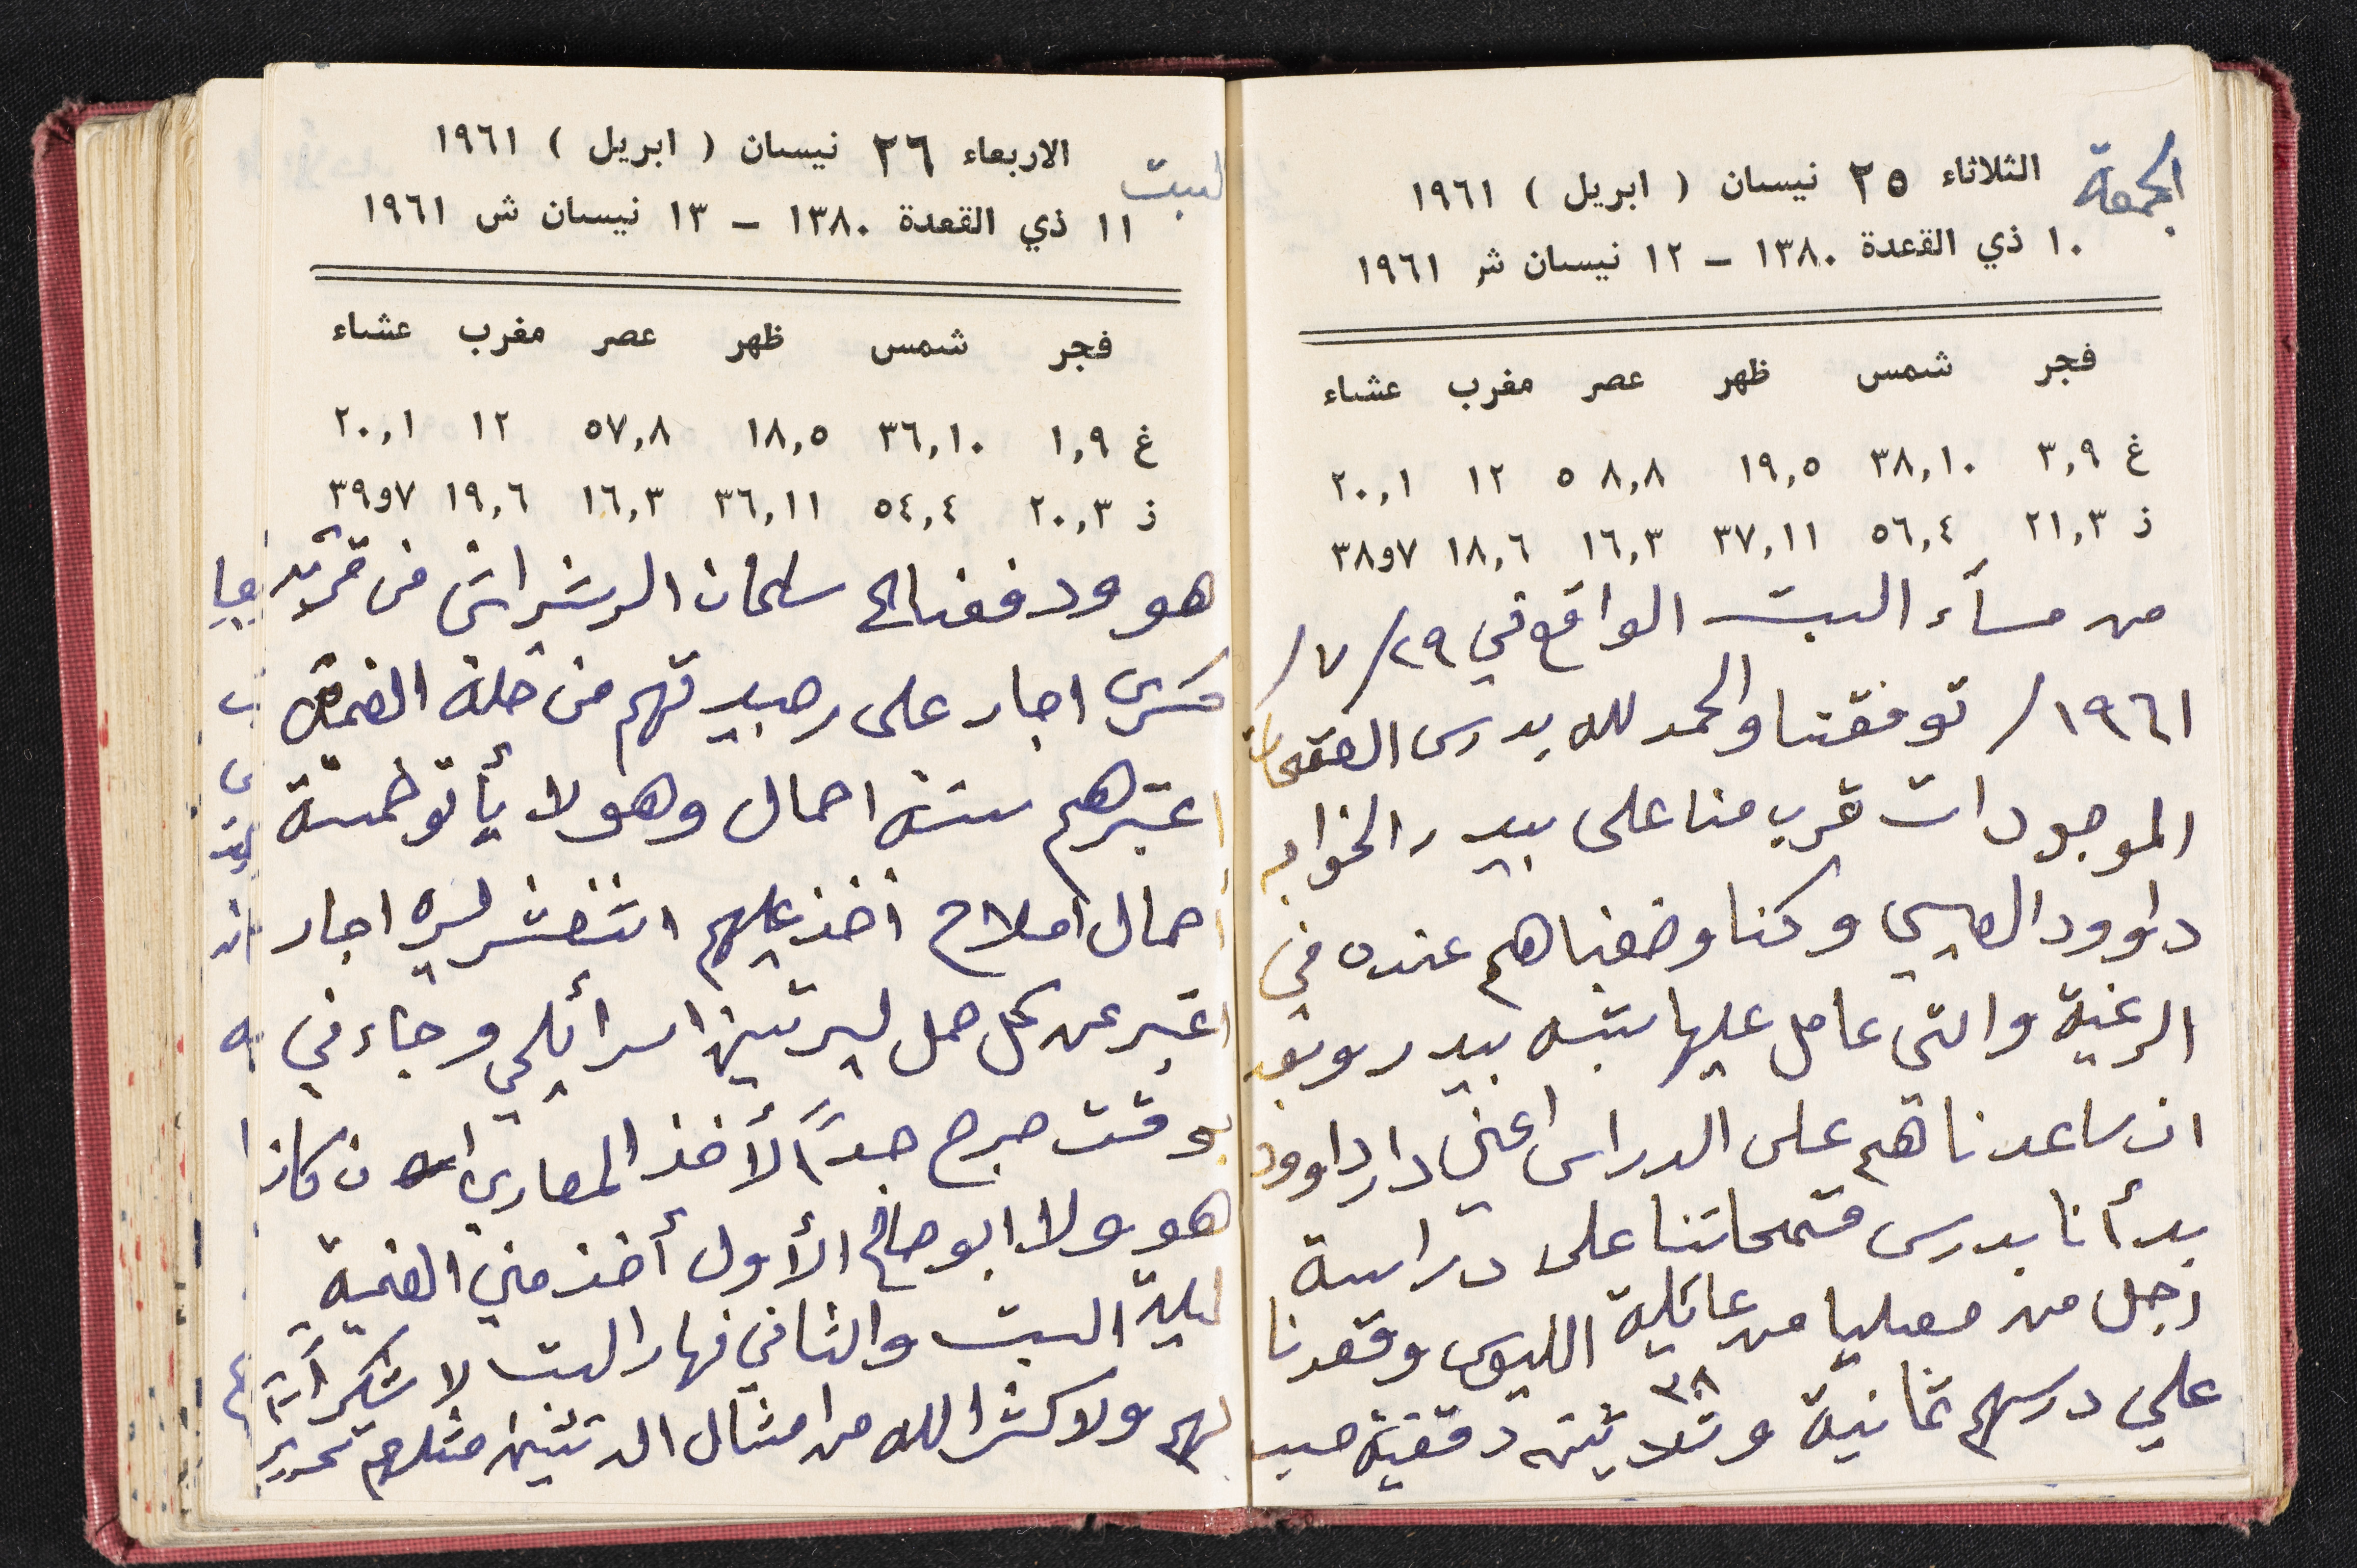 الجمعة
الثلاثاء ٢٥ نيسان ( ابريل ) ١٩٦١
١٠ ذي القعدة ١٣٨٠ – ١٢ نيسان ش ١٩٦١
فجر شمس ظهر عصر مغرب عشاء
غ ٣,٩ ٣٨,١٠ ١٩,٥ ٥٨,٨ ١٢ ٢٠,١
ز ٢١,٣ ٥٦,٤ ٣٧,١١ ١٦,٣ ١٨,٦ ٧و٣٨
من مسآء السبت الواقع في ٢٩/٧/
١٩٦١/ توفقنا والحمد لله بدرس القمحات
الموجودات قرب منا على بيدر الخواجه
داوود العيسى وكنا وضعناهم عنده في
الرغبة والتي عامل عليها شبه بيدر وبعد
ان ساعدناهم على الدراس اعني دار داوود
بدأنا بدرس قمحاتنا على دراسة
رجل من معليا من عائلة الليوس وقعدنا
على درسهم ثمانية وثلاثين ٣٨ دقيقة حسب
السبت
الاربعاء ٢٦ نيسان ( ابريل ) ١٩٦١
١١ ذي القعدة ١٣٨٠ – ١٣ نيسان ش ١٩٦١
فجر شمس ظهر عصر مغرب عشاء
غ ١,٩ ٣٦,١٠ ١٨,٥ ٥٧,٨ ١٢ ٢٠,١
ز ٢٠,٣ ٥٤,٤ ٣٦,١١ ١٦,٣ ١٩,٦ ٧و٣٩
هو ودفعنا الى سلمان من قرية
اجار على من خلة
اعتبرهم ستة احمال وهولا يأتو خمسة
احمال املاح أخذ عليهم اثنعشر ليره اجار
اعتبر عن كل حمل ليرتين اسرائيلي وجاء في
بوقت حرج جدآً لأخذ المصاري ان كان
هو ولا ابو صالح الأول أخذ مني الضمية
ليلة السبت والثاني نهار السبت لا شكرآً
لهم ولا كثر الله من امثال مثلهم تحرير